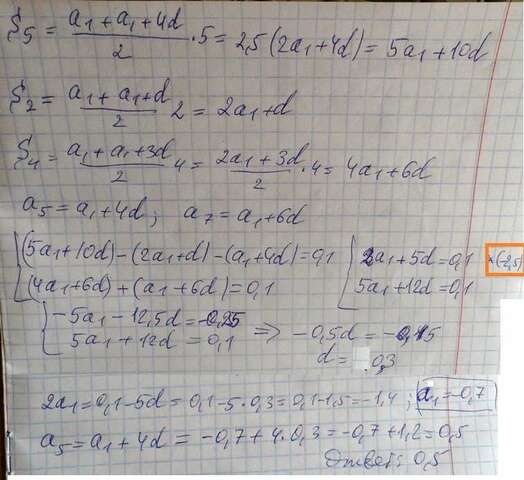 S₅ = (a₁ + a₁ + 4d)/2 · 5 = 2,5(2a₁ + 4d) = 5a₁ + 10d
S₂ = (a₁ + a₁ + d)/2 2 = 2a₁ + d
S₄ = (a₁ + a₁ + 3d)/2 4 = (2a₁ + 3d)/2 · 4 = 4a₁ + 6d
a₅ = a₁ + 4d; a₇ = a₁ + 6d
{(5a₁ + 10d) − (2a₁ + d) − (a₁ + 4d) = 0,1 {2a₁ + 5d = 0,1 ×(−2,5)
(4a₁ + 6d) + (a₁ + 6d) = 0,1 5a₁ + 12d = 0,1
{−5a₁ − 12,5d = −0,25 ⇒ −0,5d = −0,15
5a₁ + 12d = 0,1 d = 0,3
2a₁ = 0,1 − 5d = 0,1 − 5·0,3 = 0,1 − 1,5 = −1,4; a₁ = −0,7
a₅ = a₁ + 4d = −0,7 + 4·0,3 = −0,7 + 1,2 = 0,5
Ответ: 0,5